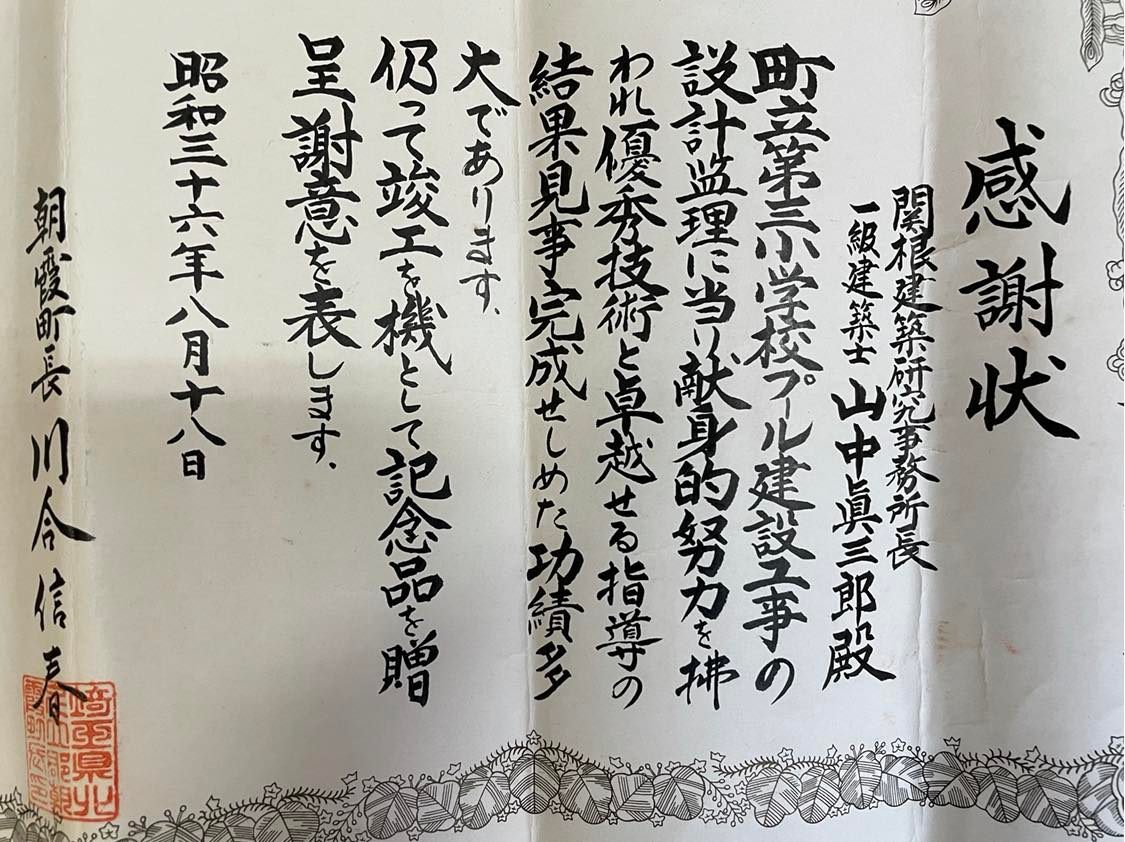 感謝状
関根建築研究事務所長
一級建築士 山中眞三郎殿
町立第三小学校プール建設工事の
設計監理に当り献身的努力を拂
われ優秀技術と卓越せる指導の
結果見事完成せしめた功績多
大であります、
仍って竣工を機として記念品を贈
呈謝意を表します、
昭和三十六年八月十八日
朝霞町長 川合信春
埼玉県北
足立郡朝
霞町長印